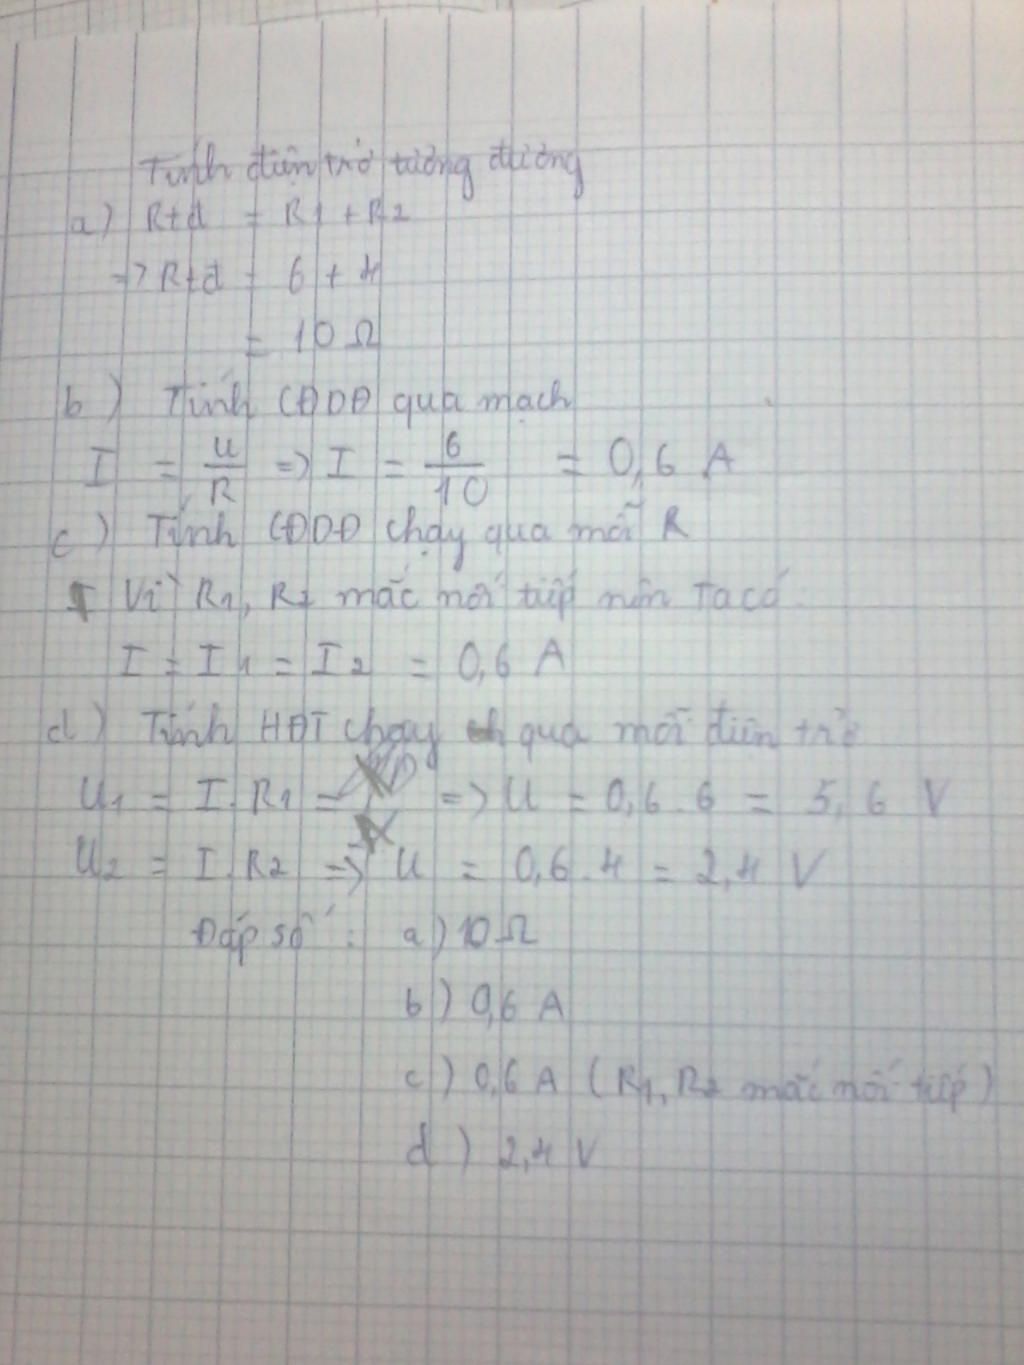 Tính điện trở tương đương
a) Rtđ = R1 + R2
=> Rtđ = 6 + 4
= 10 Ω
b) Tính CĐDĐ qua mạch
I = U/R => I = 6/10 = 0,6 A
c) Tính CĐDĐ chạy qua mỗi R
Vì R1, R2 mắc nối tiếp nên Ta có
I = I1 = I2 = 0,6 A
d) Tính HĐT chạy qua mỗi điện trở
U1 = I.R1 => U = 0,6.6 = 5,6 V
U2 = I.R2 => U = 0,6.4 = 2,4 V
Đáp số: a) 10 Ω
b) 0,6 A
c) 0,6 A (R1, R2 mắc nối tiếp)
d) 2,4 V